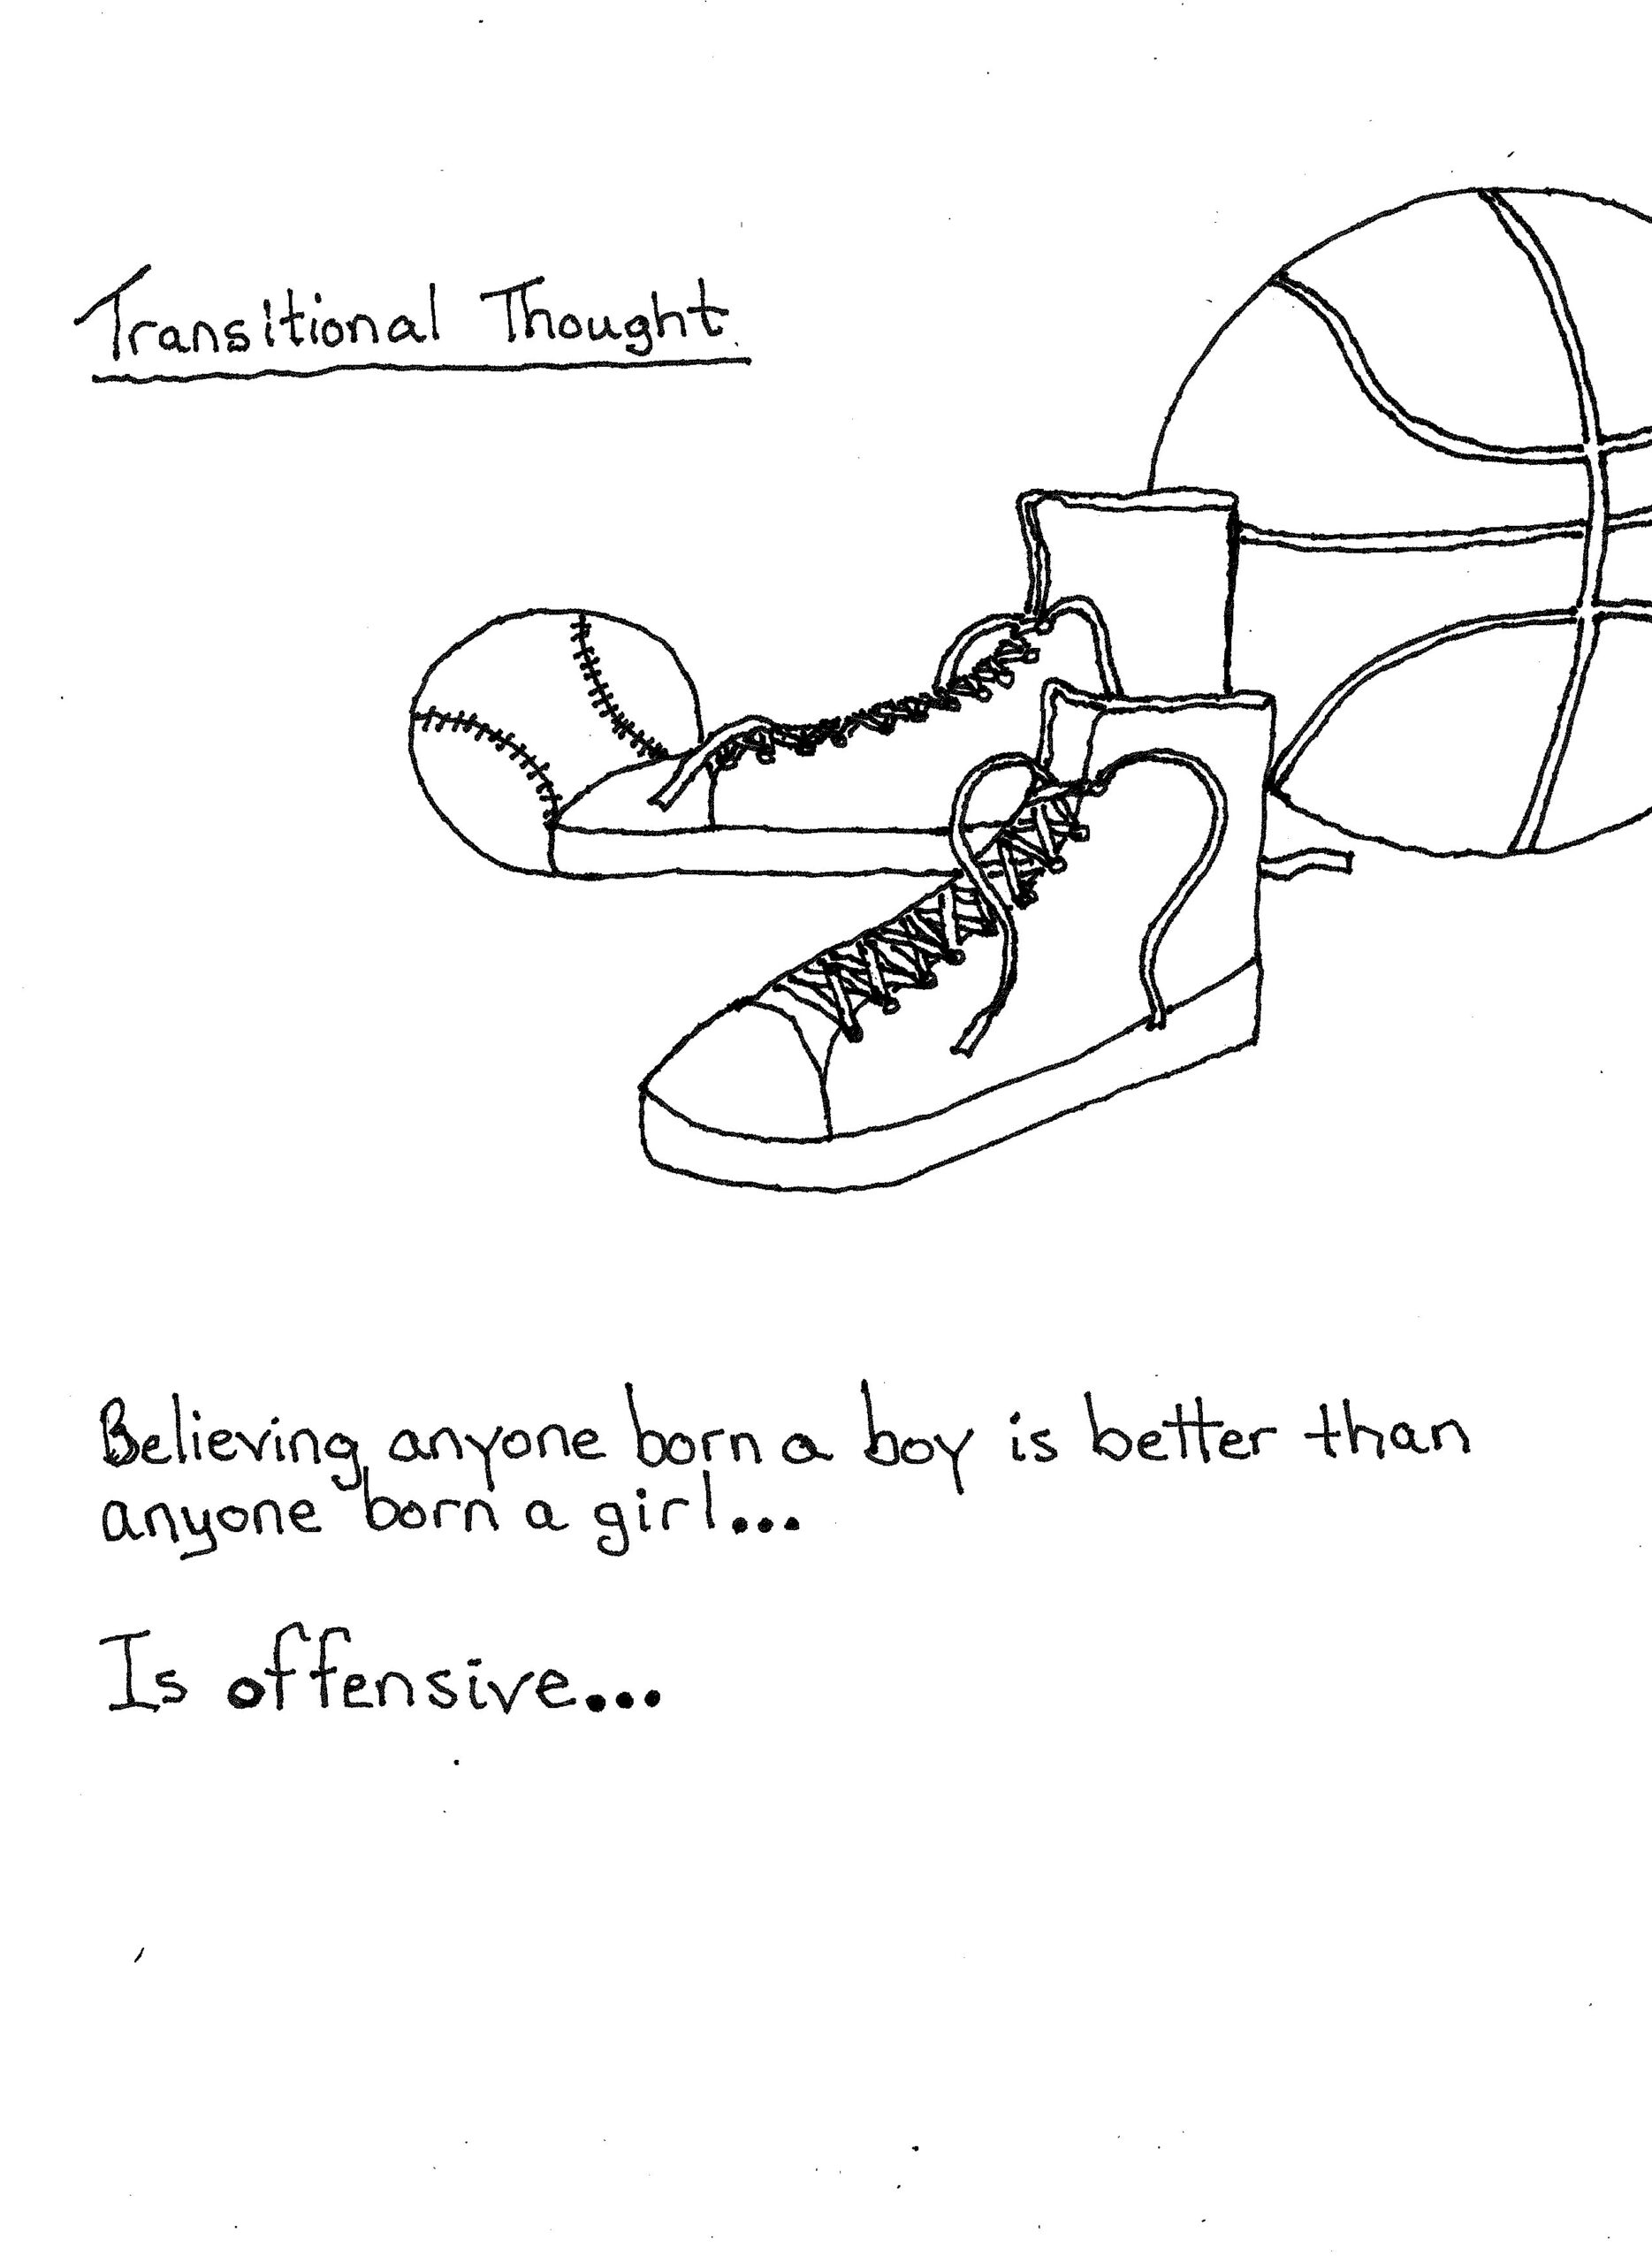 Transitional Thought
Believing anyone born a boy is better than
anyone born a girl...
Is offensive...